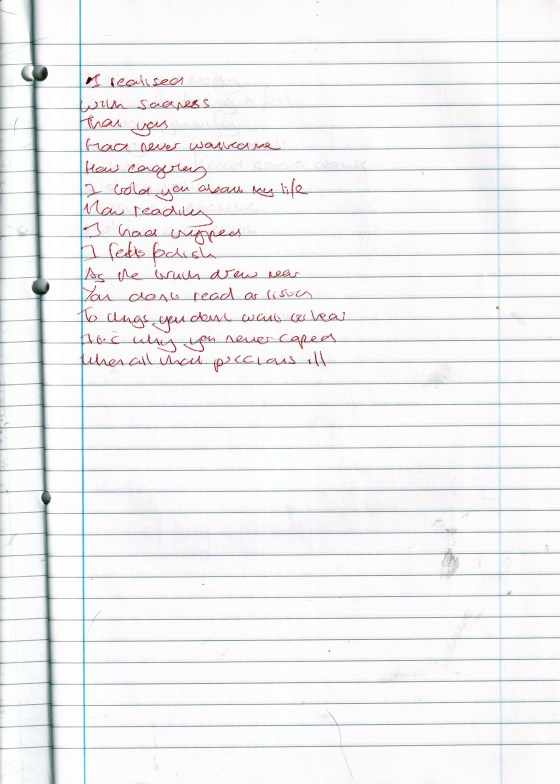 I realised
with sadness
That you
Had never wanted me
How eagerly
I told you about my life
How readily
I had
I felt foolish
As the truth drew near
You don't read or listen
To things you don't want to hear
It's why you never coped
When all that